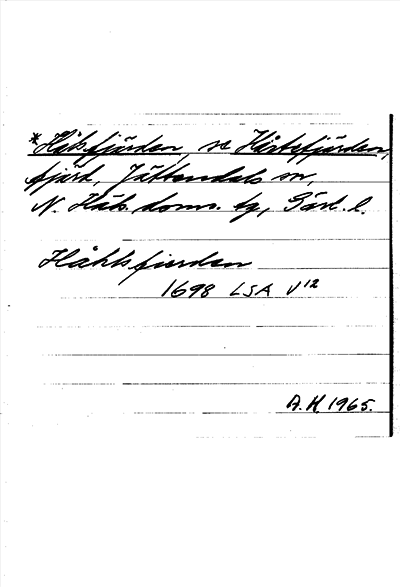 *Håksfjärden, se Hårtsfjärden,
fjärd, Jättendals sn,
N. Häls. doms. tg, Gävl. l.
Håhksfierden
1698 LSA V12
A.H. 1965.